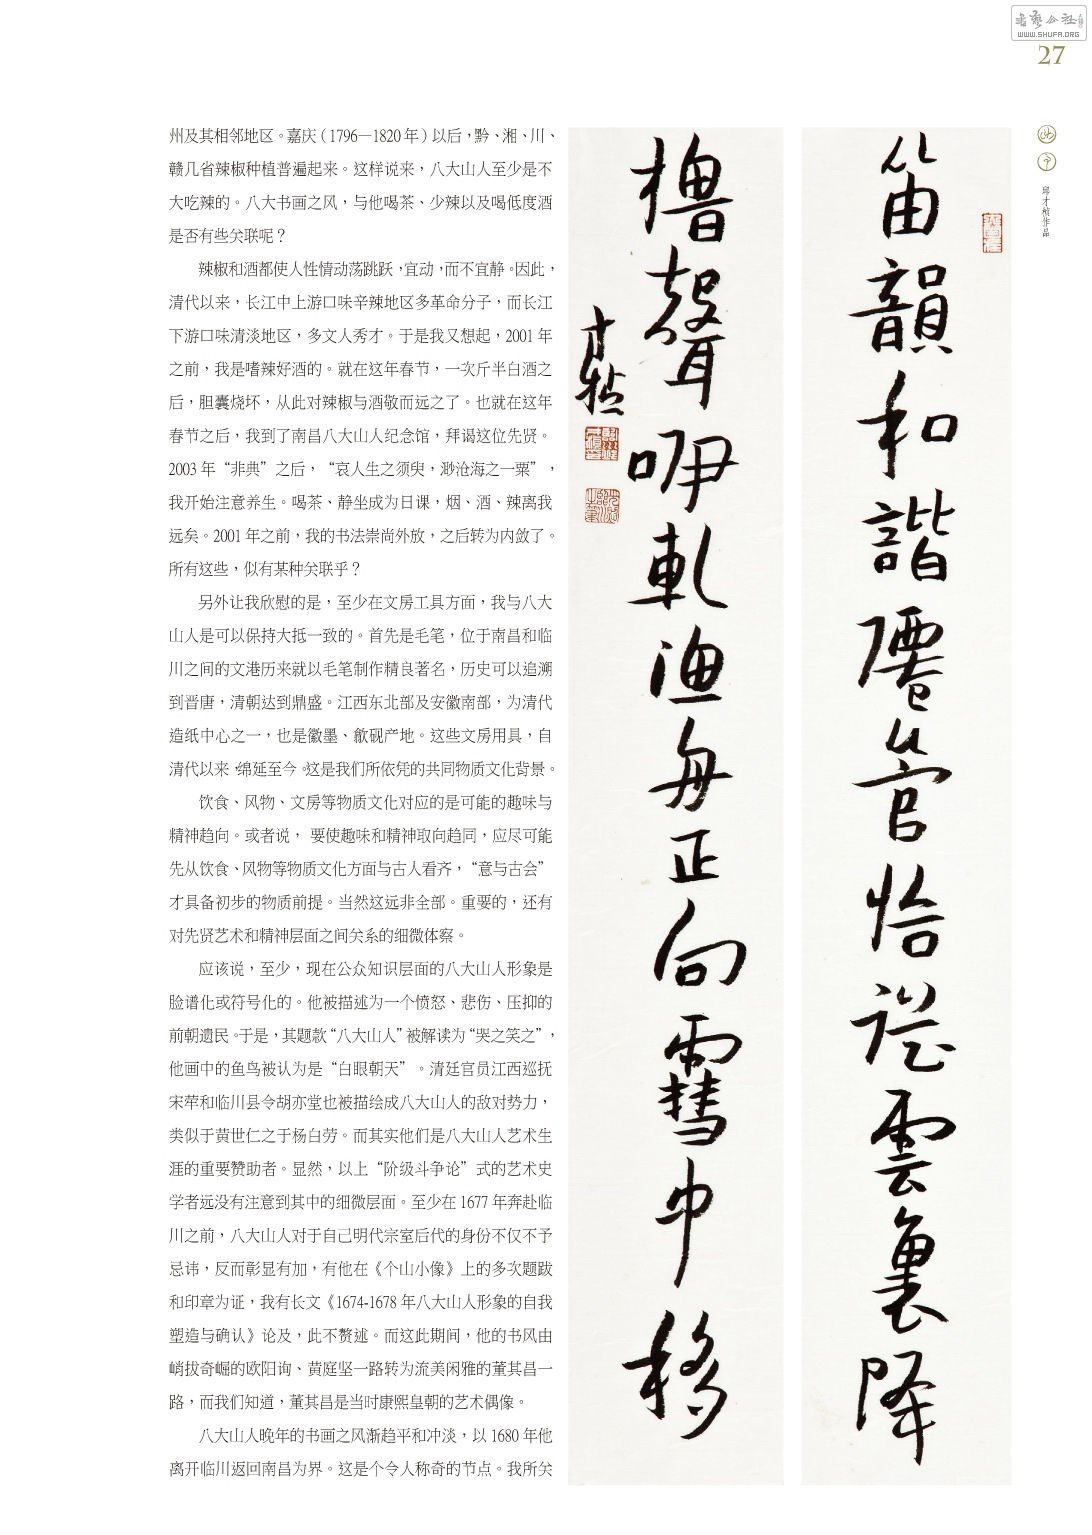 WWW.SHUFA.ORG
27
邱才桢作品
州及其相邻地区。嘉庆（1796—1820 年）以后，黔、湘、川、
赣几省辣椒种植普遍起来。这样说来，八大山人至少是不
大吃辣的。八大书画之风，与他喝茶、少辣以及喝低度酒
是否有些关联呢？
辣椒和酒都使人性情动荡跳跃，宜动，而不宜静。因此，
清代以来，长江中上游口味辛辣地区多革命分子，而长江
下游口味清淡地区，多文人秀才。于是我又想起，2001 年
之前，我是嗜辣好酒的。就在这年春节，一次斤半白酒之
后，胆囊烧坏，从此对辣椒与酒敬而远之了。也就在这年
春节之后，我到了南昌八大山人纪念馆，拜谒这位先贤。
2003 年“非典”之后，“哀人生之须臾，渺沧海之一粟”，
我开始注意养生。喝茶、静坐成为日课，烟、酒、辣离我
远矣。2001 年之前，我的书法崇尚外放，之后转为内敛了。
所有这些，似有某种关联乎？
另外让我欣慰的是，至少在文房工具方面，我与八大
山人是可以保持大抵一致的。首先是毛笔，位于南昌和临
川之间的文港历来就以毛笔制作精良著名，历史可以追溯
到晋唐，清朝达到鼎盛。江西东北部及安徽南部，为清代
造纸中心之一，也是徽墨、歙砚产地。这些文房用具，自
清代以来，绵延至今。这是我们所依凭的共同物质文化背景。
饮食、风物、文房等物质文化对应的是可能的趣味与
精神趋向。或者说， 要使趣味和精神取向趋同，应尽可能
先从饮食、风物等物质文化方面与古人看齐，“意与古会”
才具备初步的物质前提。当然这远非全部。重要的，还有
对先贤艺术和精神层面之间关系的细微体察。
应该说，至少，现在公众知识层面的八大山人形象是
脸谱化或符号化的。他被描述为一个愤怒、悲伤、压抑的
前朝遗民。于是，其题款“八大山人”被解读为“哭之笑之”，
他画中的鱼鸟被认为是“白眼朝天”。清廷官员江西巡抚
宋荦和临川县令胡亦堂也被描绘成八大山人的敌对势力，
类似于黄世仁之于杨白劳。而其实他们是八大山人艺术生
涯的重要赞助者。显然，以上“阶级斗争论”式的艺术史
学者远没有注意到其中的细微层面。至少在 1677 年奔赴临
川之前，八大山人对于自己明代宗室后代的身份不仅不予
忌讳，反而彰显有加，有他在《个山小像》上的多次题跋
和印章为证，我有长文《1674-1678 年八大山人形象的自我
塑造与确认》论及，此不赘述。而这此期间，他的书风由
峭拔奇崛的欧阳询、黄庭坚一路转为流美闲雅的董其昌一
路，而我们知道，董其昌是当时康熙皇朝的艺术偶像。
八大山人晚年的书画之风渐趋平和冲淡，以 1680 年他
离开临川返回南昌为界。这是个令人称奇的节点。我所关
笛韻和諧僊管恰從雲裏降
櫓聲咿軋漁舟正向雪中移
才楨